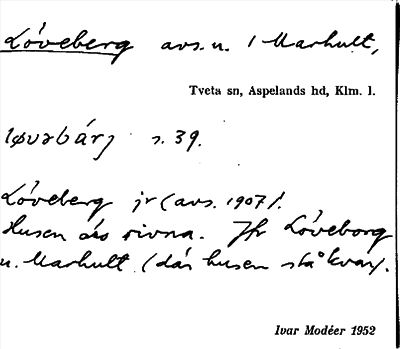 Löveberg avs. u. 1 Marhult,
Tveta sn, Aspelands hd, Klm. l.
løvəbárj s. 39.
Löveberg jr (avs. 1907).
Husen äro rivna. Jfr Löveborg
u. Marhult (där husen stå kvar).
Ivar Modéer 1952